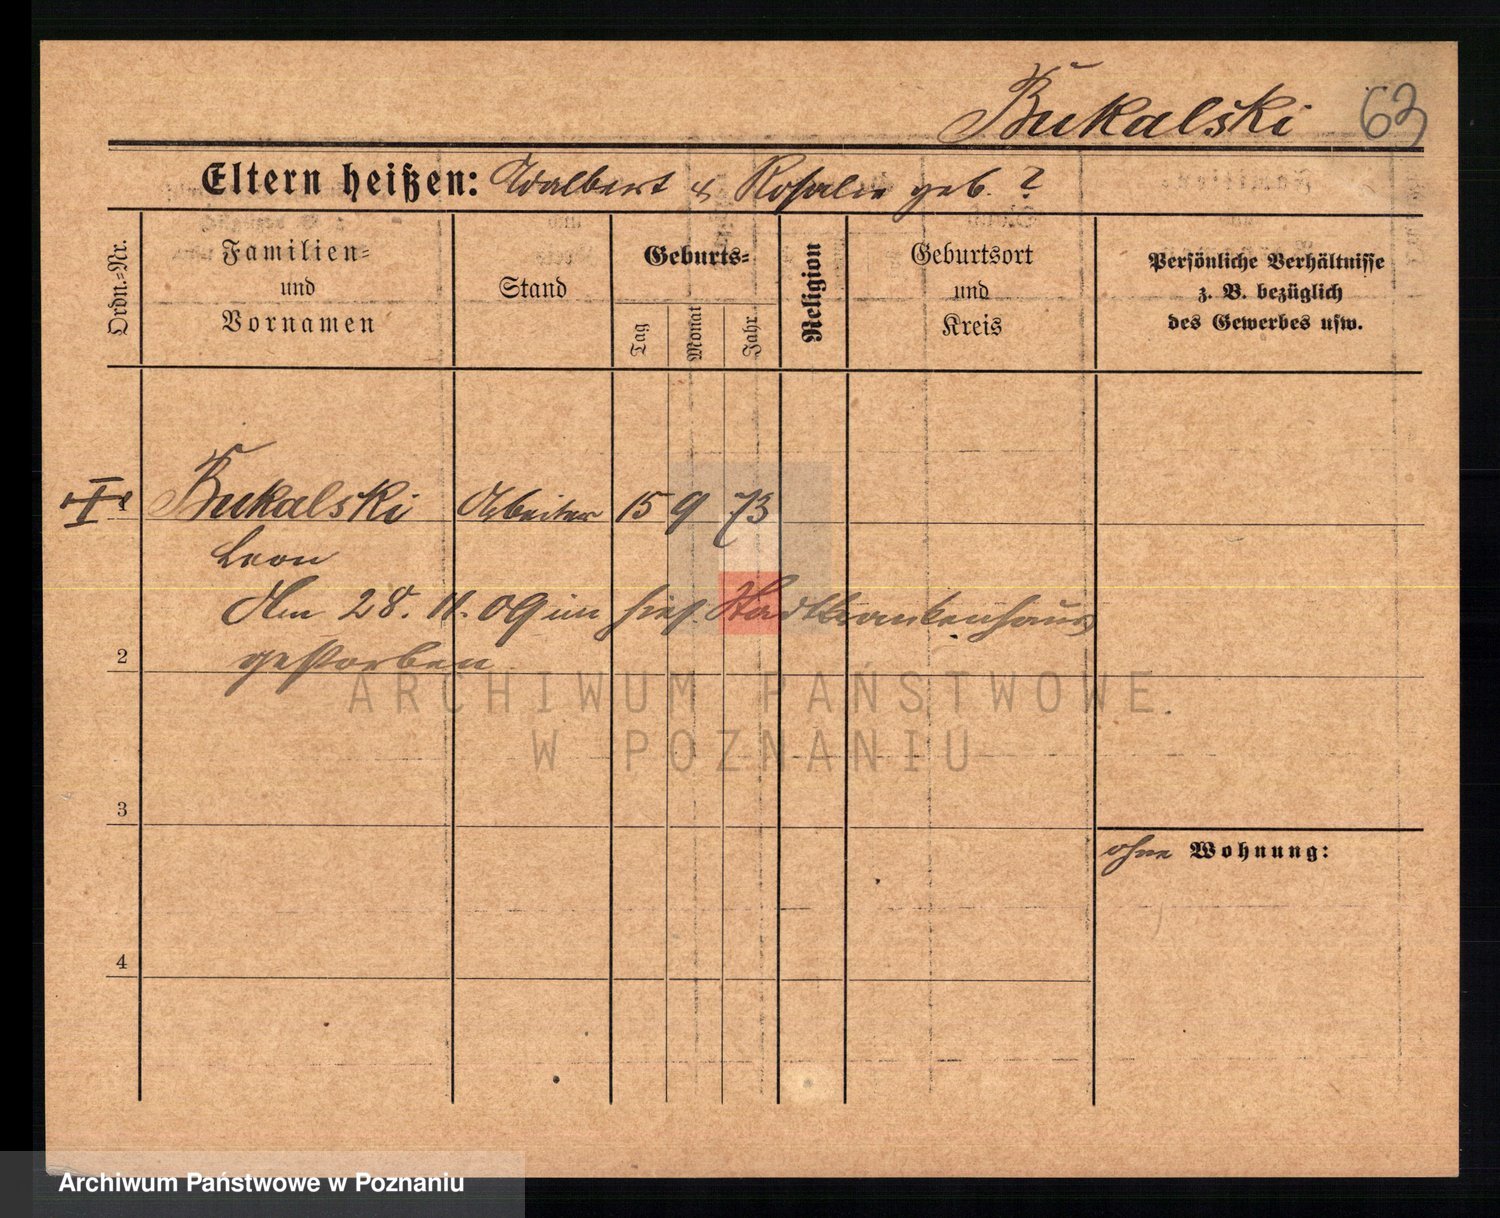 Bukalski 63
Eltern heißen: Adalbert & Rosalie geb. ?
Ordn.-Nr.
Familien-
und
Vornamen
Stand
Geburts-
Tag
Monat
Jahr
Religion
Geburtsort
und
Kreis
Persönliche Verhältnisse
z. B. bezüglich
des Gewerbes usw.
1 Bukalski Arbeiter 15 9 73
Leon
Am 28. 11. 09 im hies. Stadtkrankenhaus
gestorben
2
ARCHIWUM PAŃSTWOWE
W POZNANIU
3
ohne Wohnung:
4
Archiwum Państwowe w Poznaniu